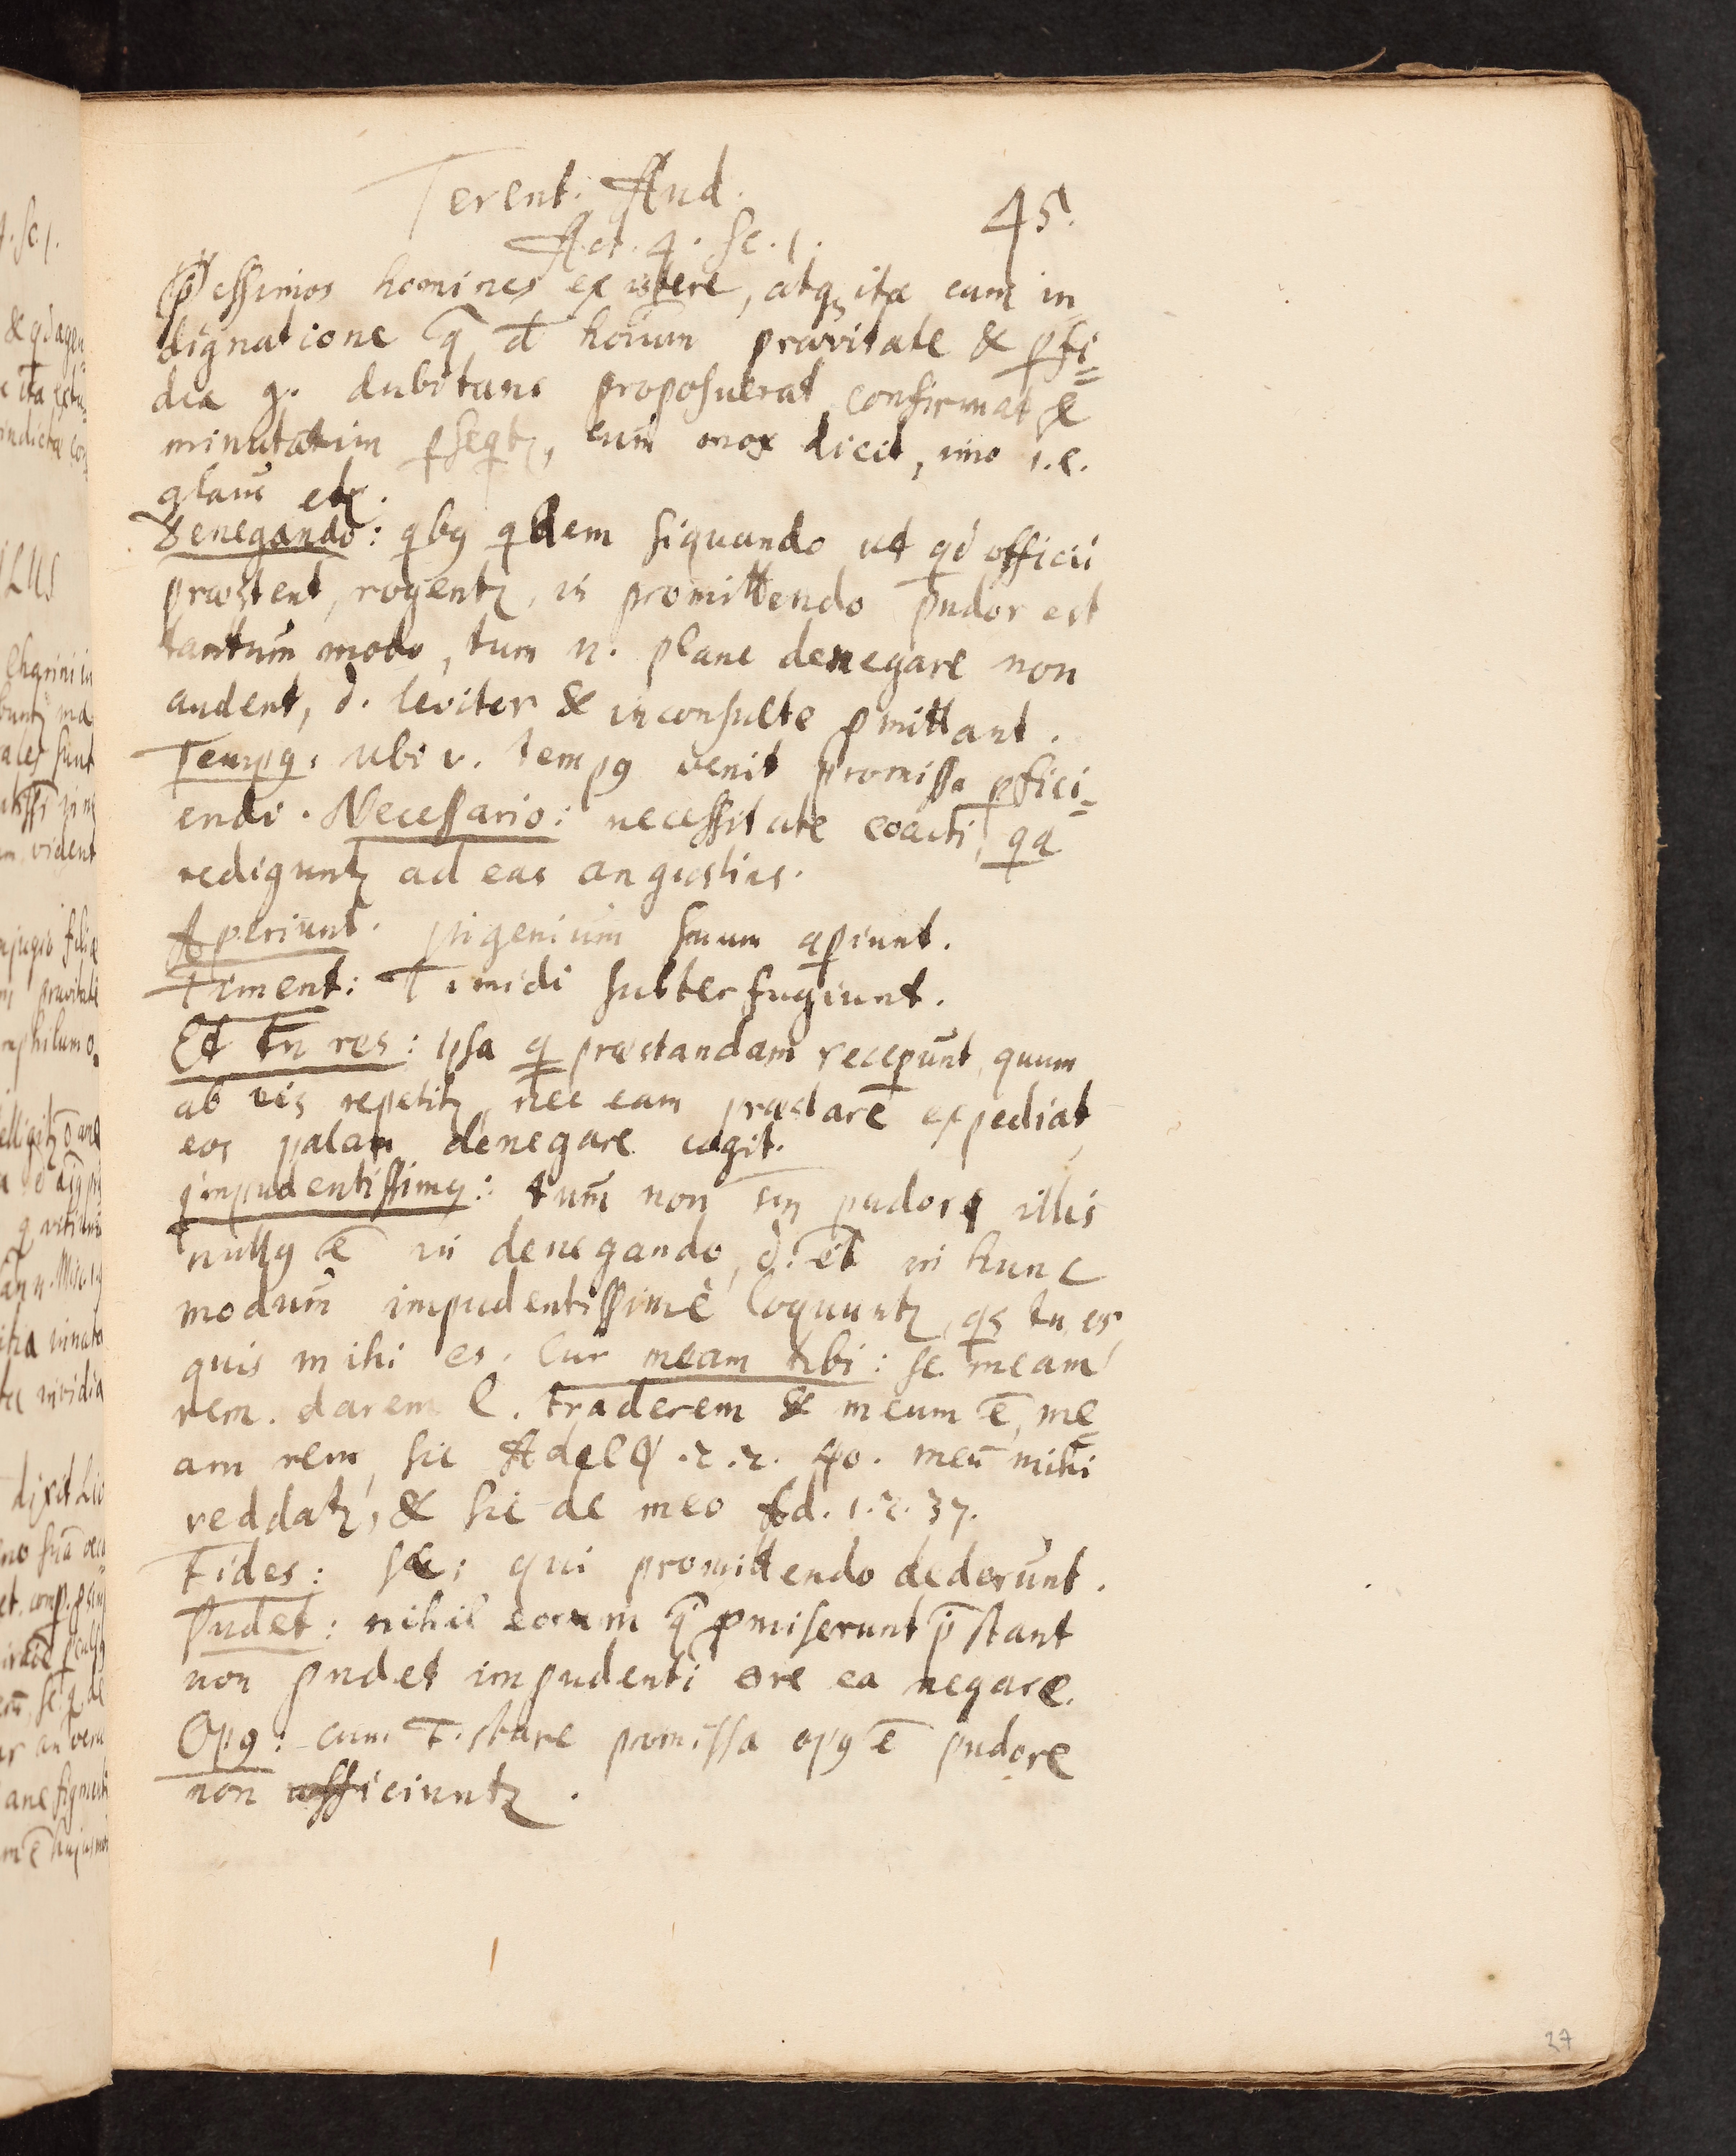 Terent. And.
45.
Act. 4. Sc. 1.
p̄essimos homines existere, atqꝫ ita cum in
dignatione q̄ d̄ horum pravitate & ꝑfi=
dia g. dubitans proposuerat confirmat &
minutatim ꝑseqtꝫ, cum mox dicit, imo i.e.
Denegando: qbꝰ qdem siquando ut qd officii
præstent, rogentꝫ, is promittendo pudor est
tantum modo, tum n. plane denegare non
audent, s. leviter & inconsulte ꝓmittant.
Tempꝰ. ubi v. tempꝰ venit promissa ꝑfici-
endi. Necessario: necessitate coacti, qa
rediguntꝫ ad eas angustias.
Aperiunt. ingenium suum aꝑiunt.
Timent: Timidi subterfugiunt.
Et tn res: ipsa q præstandam receꝑunt, quum
ab iis repetitꝫ nec eam præstare expediat,
eos palam denegare cogit.
impudentissimꝰ: tum non pudoris illis
nullꝰ ē in denegando, s. et in hunc
modum impudentissimè loquuntꝫ, qs tu es,
quis mihi es. Cur meam tibi: sc. meam
rem. darem l. traderem & meum ē, me
am rem, sic Adelφ. 2. 2. 40. meū mihi
reddatꝫ, & sic de meo Ad. 1. 2. 37.
Fides: sc: qui promittendo dederunt.
Pudet: nihil eorum q̄ ꝓmiserunt p̄stant
non pudet impudenti ore ea negare.
Opꝰ: cum stare promissa opꝰ ē pudore
non afficiuntꝫ.
27